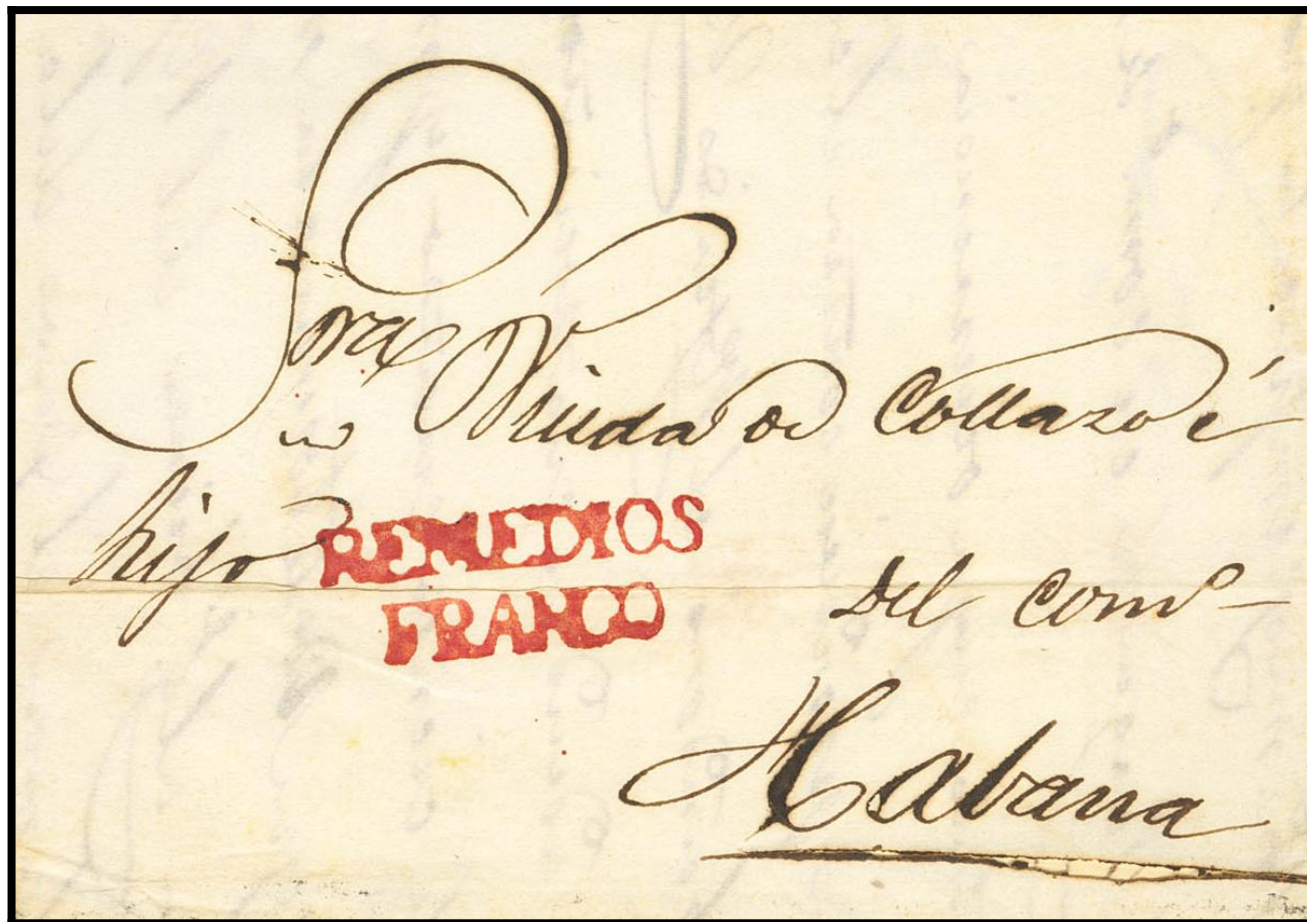 Sra
Viuda de Collazo é
hijo
REMEDIOS
FRANCO
del comº
Habana